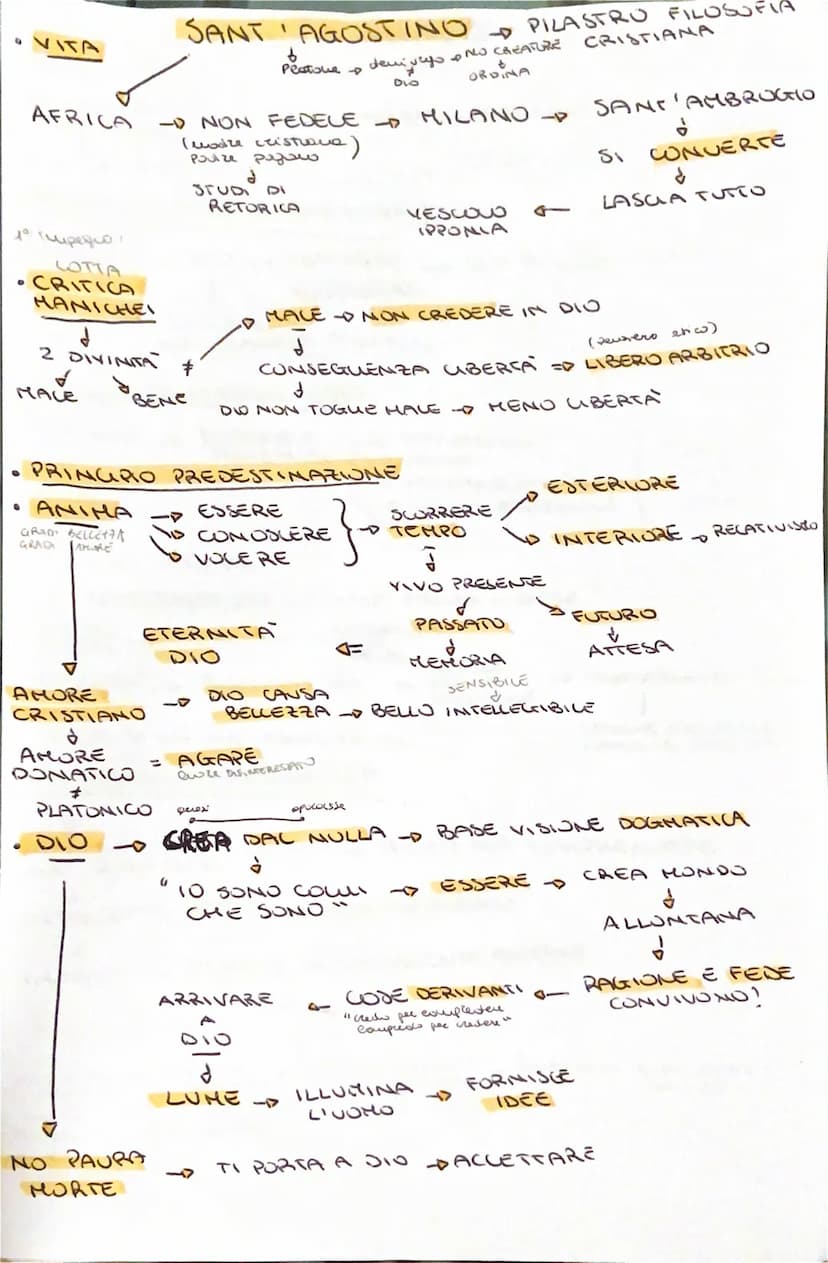 SANT'AGOSTINO → PILASTRO FILOSOFIA CRISTIANA
• VITA
Platone → demiurgo → NO CREATURE
≠ DIO
ORDINA
AFRICA → NON FEDELE → MILANO → SANT'AMBROGIO
(madre cristiana
padre pagano)
SI CONVERTE
STUDI DI
RETORICA
LASCIA TUTTO
VESCOVO ←
IPPONIA
1° impegno:
LOTTA
• CRITICA
MANICHEI
MALE → NON CREDERE IN DIO
2 DIVINITÀ ≠
(pensiero etico)
CONSEGUENZA LIBERTÀ => LIBERO ARBITRIO
MALE BENE
DIO NON TOGLIE MALE → MENO LIBERTÀ
• PRINCIPIO PREDESTINAZIONE
• ANIMA → ESSERE
→ CONOSCERE
→ VOLERE
GRADI BELLEZZA
GRADI AMORE
} → SCORRERE
TEMPO
ESTERIORE
INTERIORE → RELATIVISMO
VIVO PRESENTE
PASSATO
FUTURO
ETERNITÀ
DIO
<=
MEMORIA
ATTESA
SENSIBILE
AMORE
CRISTIANO → DIO CAUSA
BELLEZZA → BELLO INTELLEGIBILE
AMORE
DONATICO = AGAPE
AMORE DISINTERESSATO
≠
PLATONICO
genesi apocalisse
• DIO → CREA DAL NULLA → BASE VISIONE DOGMATICA
"IO SONO COLUI
CHE SONO" → ESSERE → CREA MONDO
ALLONTANA
RAGIONE E FEDE
CONVIVONO!
ARRIVARE ← CODE DERIVANTI ←
"credo per comprendere
comprendo per credere"
A
DIO
LUME → ILLUMINA
L'UOMO → FORNISCE
IDEE
NO PAURA
MORTE → TI PORTA A DIO → ACCETTARE